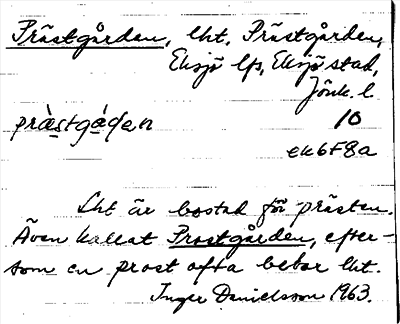 Prästgården, lht, Prästgården,
Eksjö lfs, Eksjö stad,
Jönk. l.
præstgå̀den 10
ek6F8a
Lht är bostad för prästen.
Även kallat Prostgården, efter-
som en prost ofta bebor lht.
Inger Danielsson 1963.